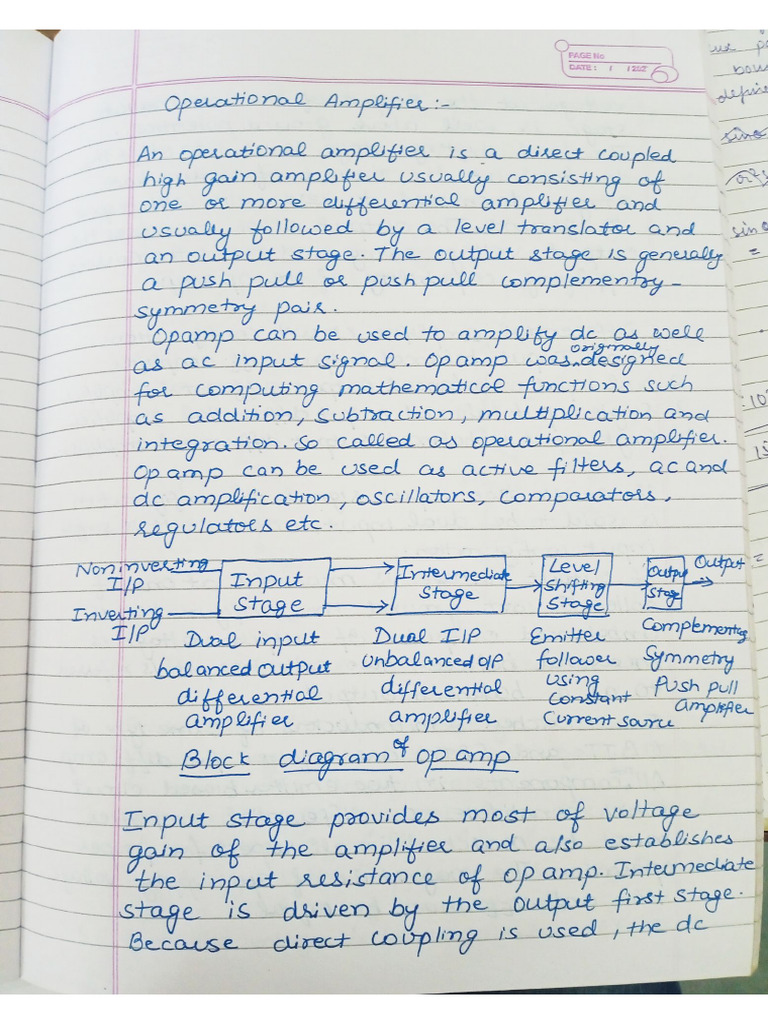 PAGE No
DATE: / /202
Operational Amplifier:-
An operational amplifier is a direct coupled
high gain amplifier usually consisting of
one or more differential amplifier and
usually followed by a level translator and
an output stage. The output stage is generally
a push pull or push pull complementry-
symmetry pair.
Opamp can be used to amplify dc as well
as ac input signal. Op amp was originally designed
for computing mathematical functions such
as addition, subtraction, multiplication and
integration. So called as operational amplifier.
Op amp can be used as active filters, ac and
dc amplification, oscillators, comparators,
regulators etc.
Noninverting I/P
Inverting I/P
Input Stage
Intermediate Stage
Level Shifting Stage
Output Stage
Output
Dual input balanced output differential amplifier
Dual I/P unbalanced O/P differential amplifier
Emitter follower using constant current source
Complementry Symmetry push pull amplifier
Block diagram of op amp
Input stage provides most of voltage
gain of the amplifier and also establishes
the input resistance of op amp. Intermediate
stage is driven by the output first stage.
Because direct coupling is used, the dc